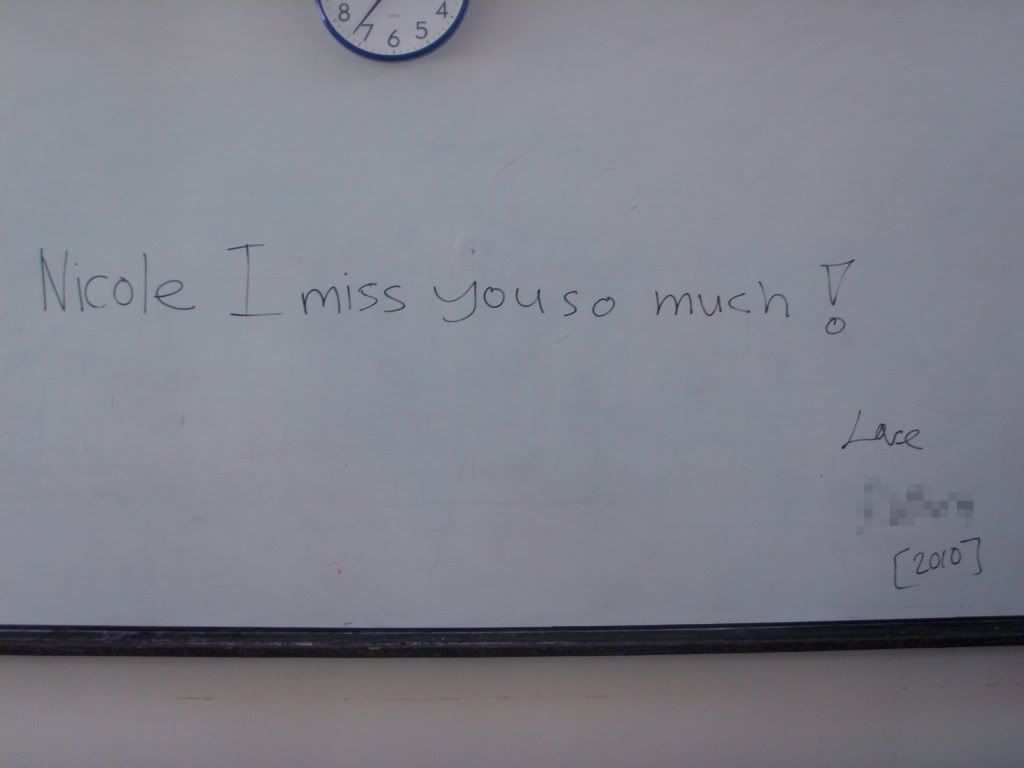 8 7 6 5 4
Nicole I miss you so much!
[2010]